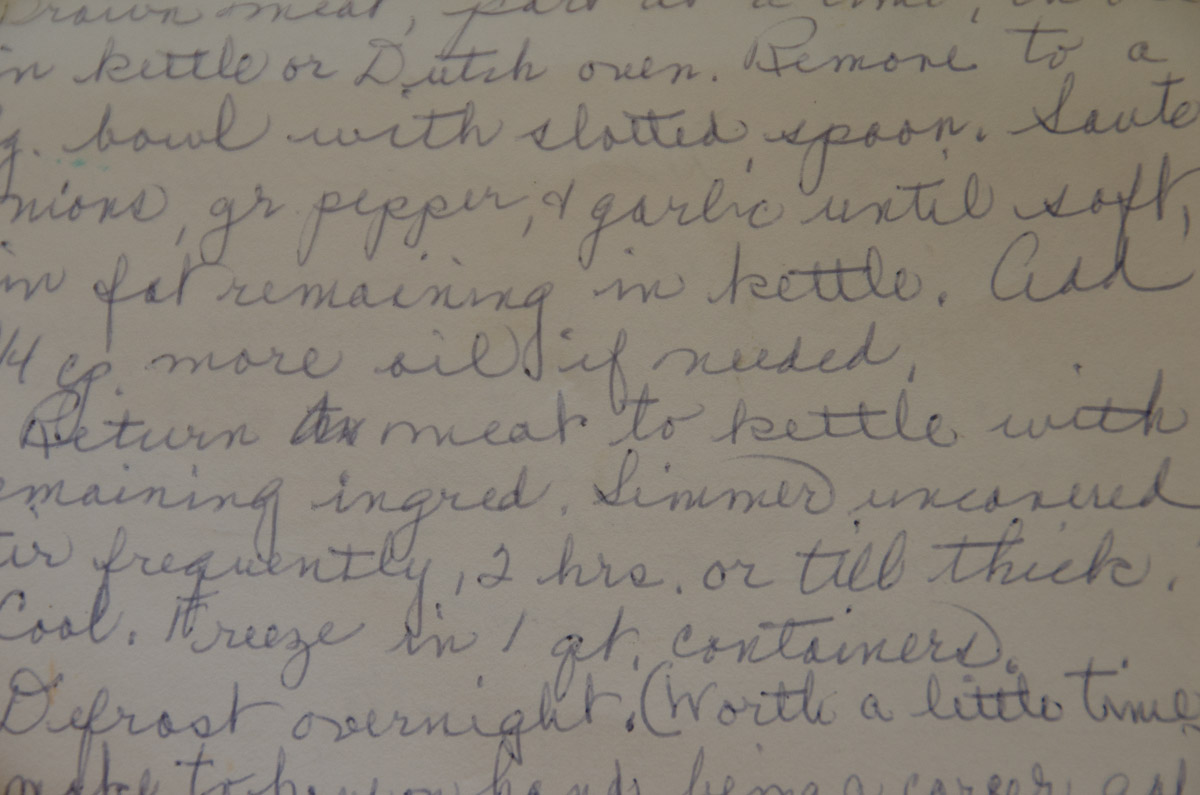 Brown meat, part at a time,
in kettle or Dutch oven. Remove to a
lg. bowl with slotted spoon. Saute
nions, gr pepper, & garlic until soft,
in fat remaining in kettle. Add
1/4 cp. more oil if needed.
Return meat to kettle with
emaining ingred. Simmer uncovered
tir frequently, 2 hrs. or till thick.
Cool. Freeze in 1 qt. containers.
Defrost overnight. (Worth a little time
make to have on hand, being a career